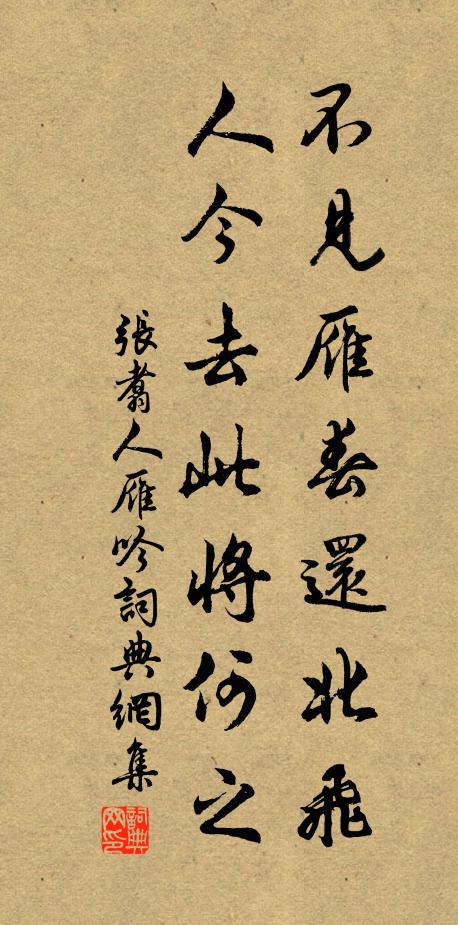 不見雁春還北飛
人今去此將何之
張翥人雁吟詞典網集
詞典網印